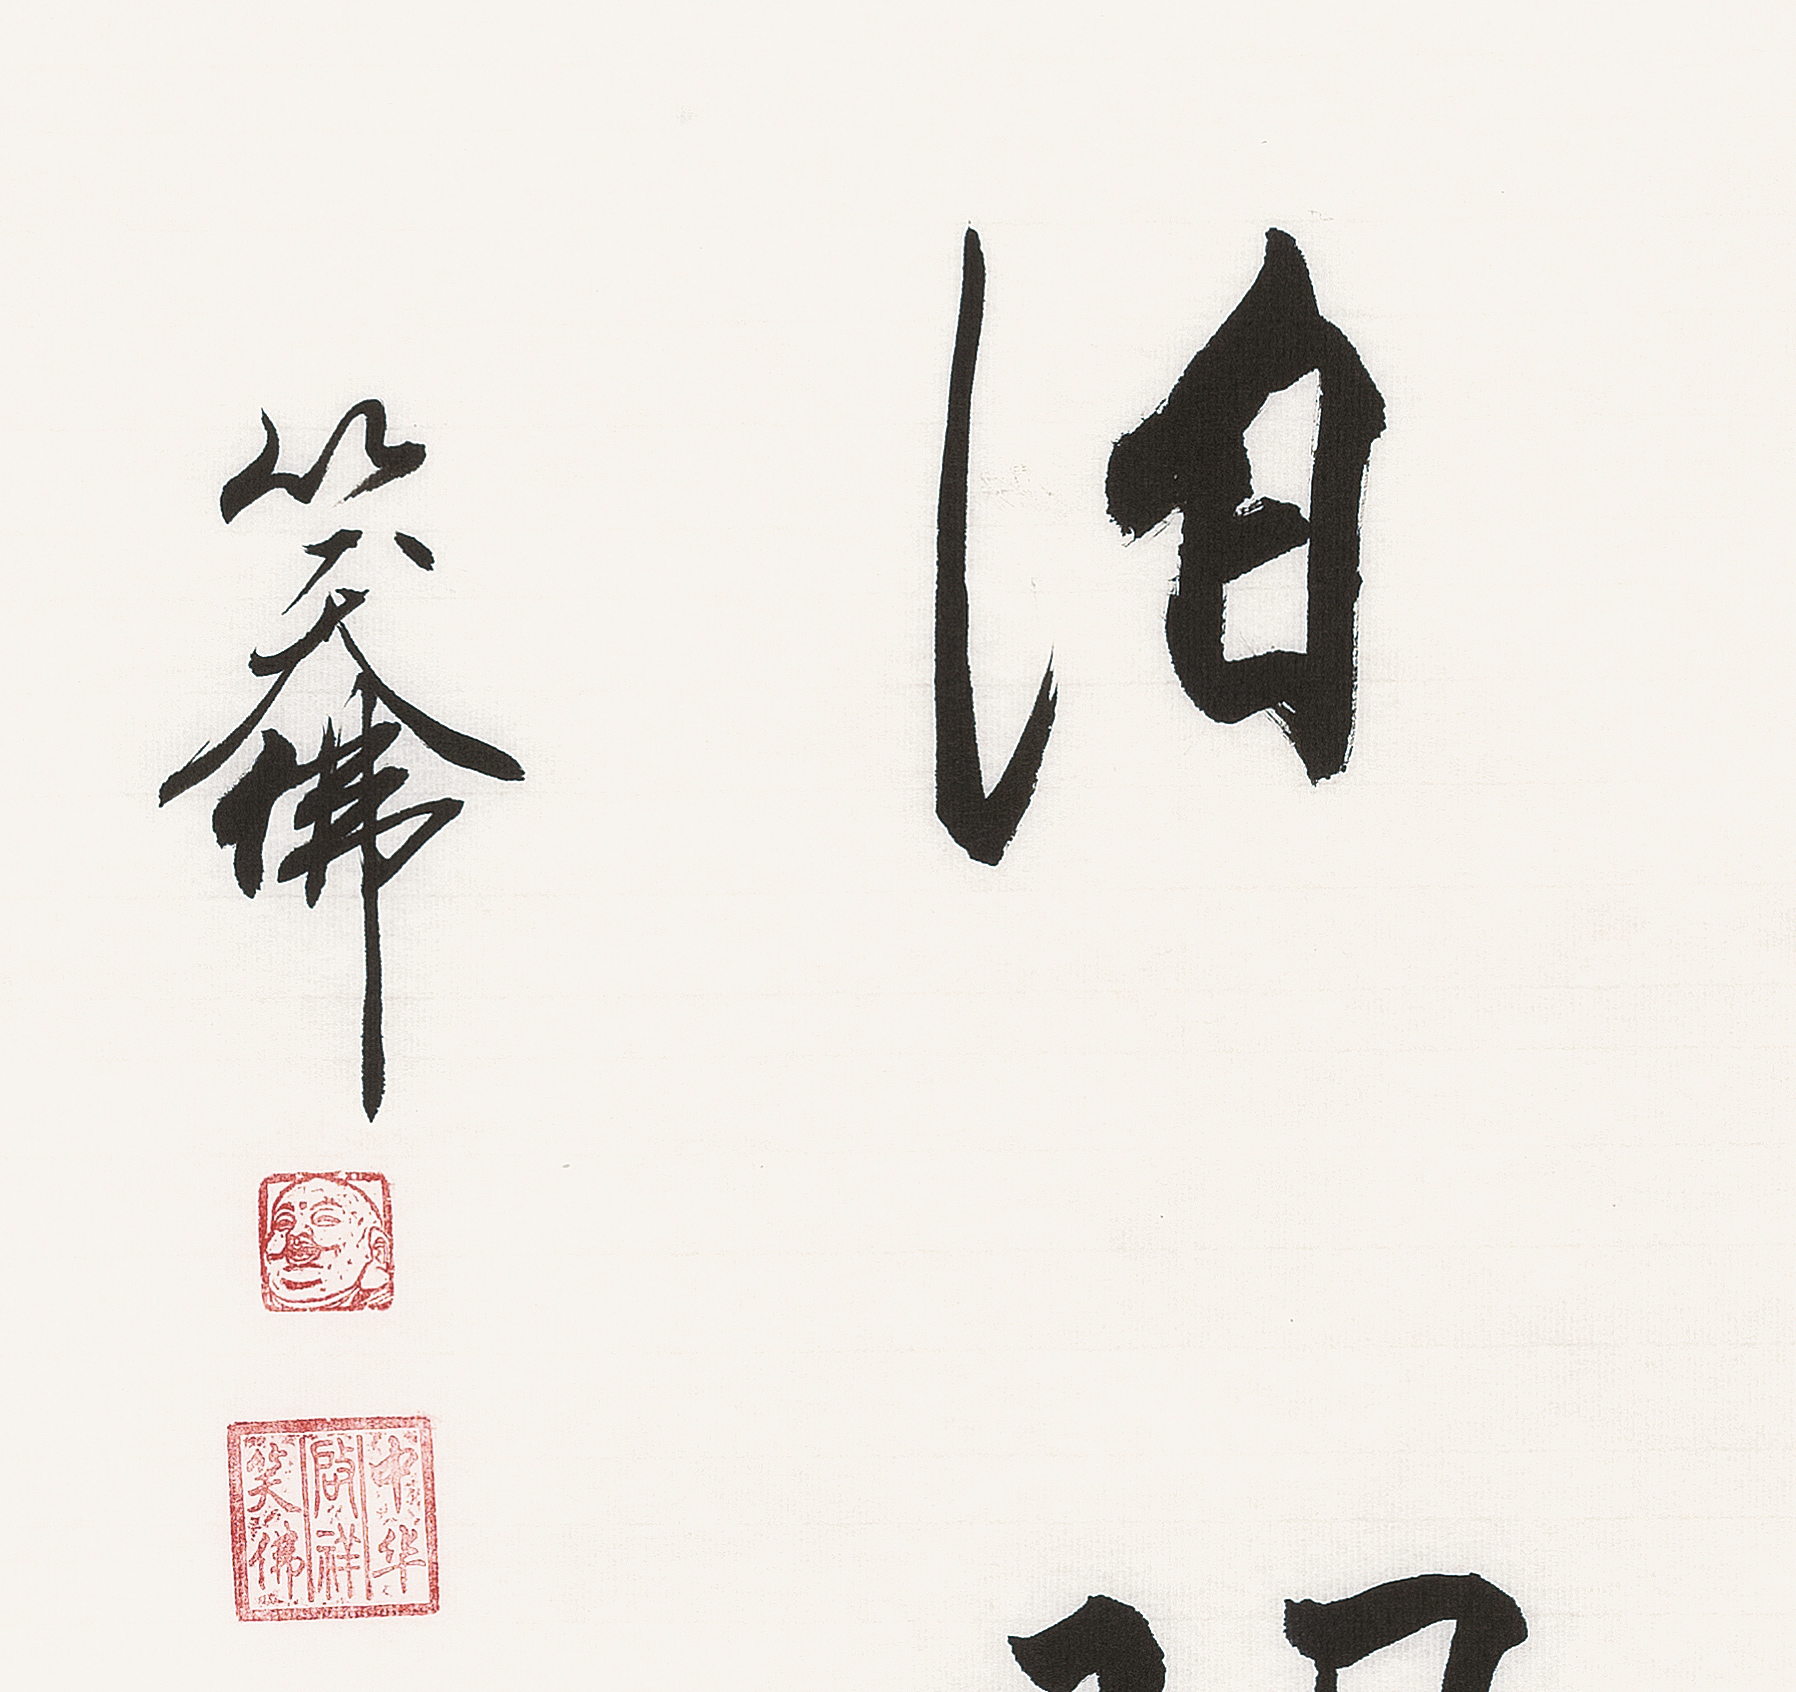 泊
笑佛
中华
啟祥
笑佛